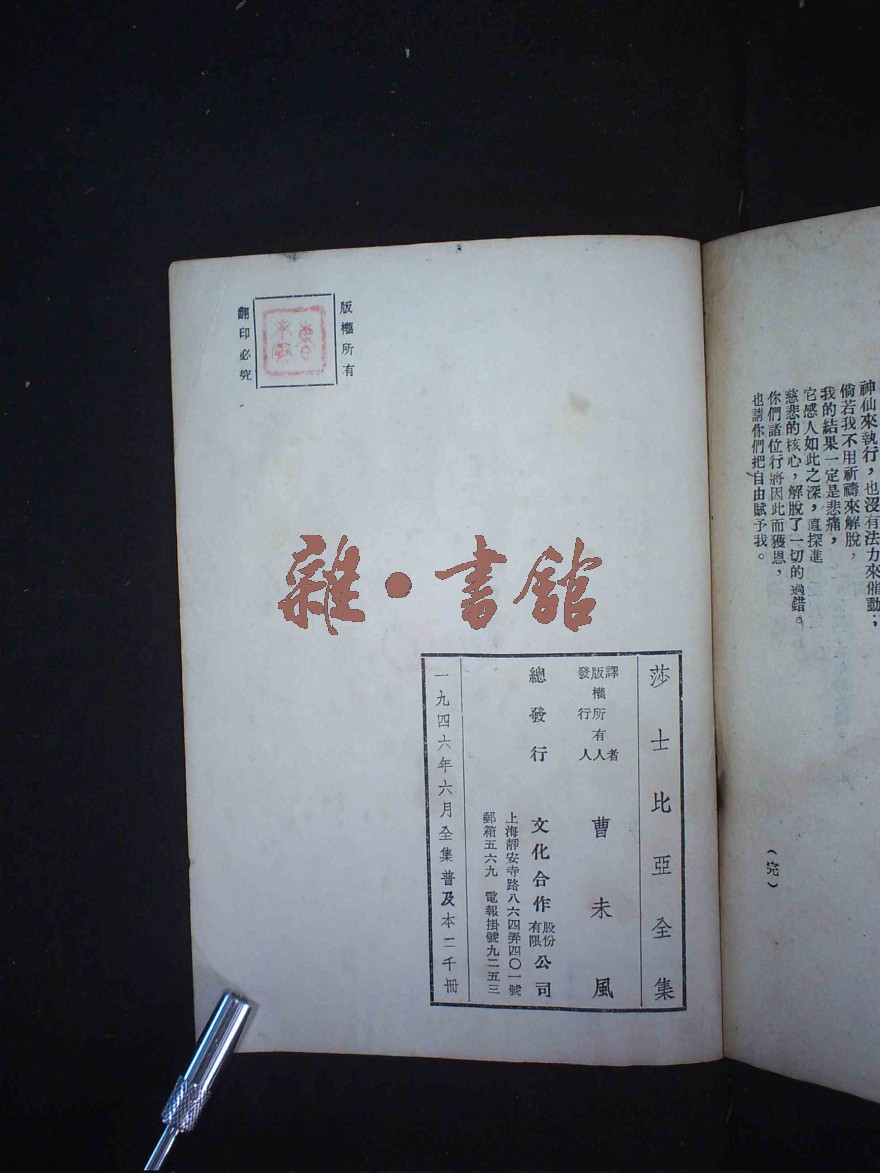 神仙來執行，也沒有法力來催動；
倘若我不用祈禱來解脫，
我的結果一定是悲痛，
它感人如此之深，直探進
慈悲的核心，解脫了一切的過錯。
你們諸位行將因此而獲恩，
也請你們把自由賦予我。
（完）
版權所有
翻印必究
雜·書館
莎士比亞全集
譯者
版權所有人
發行人
曹未風
總發行 文化合作股份有限公司
上海靜安寺路八六四弄四〇一號
郵箱五六九 電報掛號九二五三
一九四六年六月全集普及本二千冊